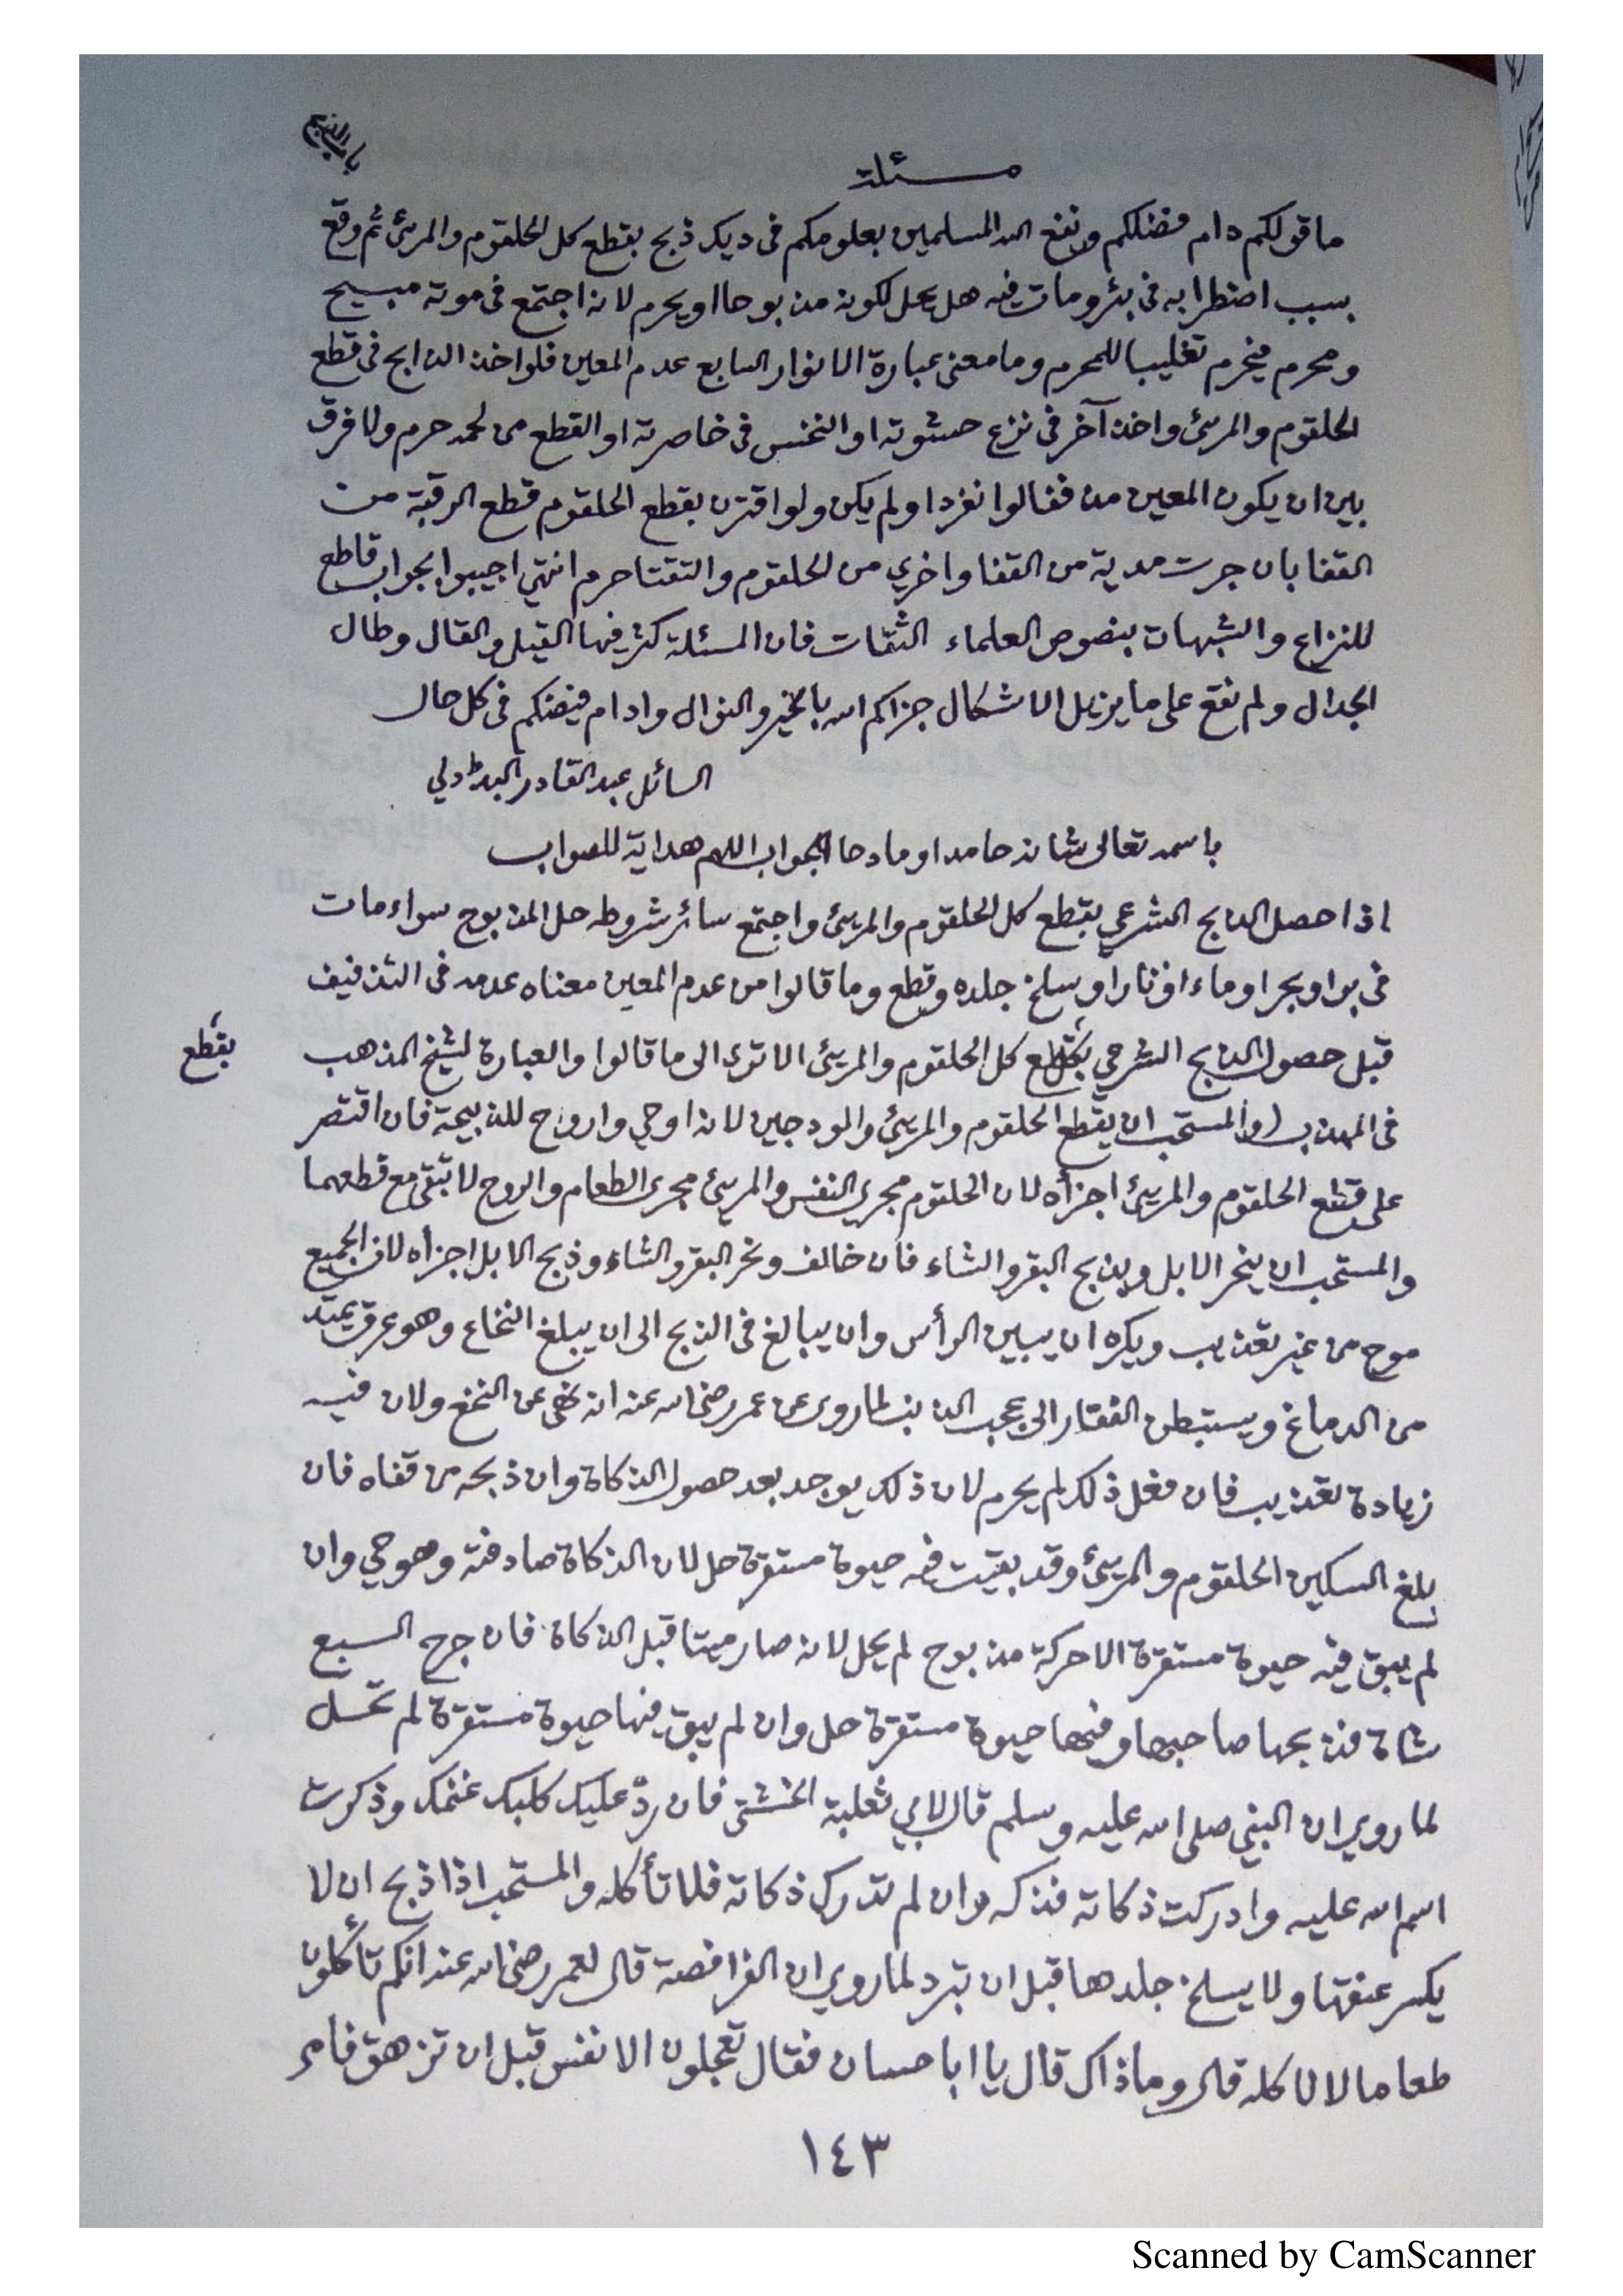 باب الذبح
مسئلة
ما قولكم دام فضلكم ونفع الله المسلمين بعلومكم فى ديك ذبح بقطع كل الحلقوم والمرئ ثم وقع
بسبب اضطرابه فى بئر ومات فيه هل يحل لكونه مذبوحا او يحرم لانه اجتمع فى موته مبيح
ومحرم فيحرم تغليبا للمحرم وما معنى عبارة الانوار السابع عدم المعين فلو اخذ الذابح فى قطع
الحلقوم والمرئ واخذ آخر فى نزع حشوته او النخس فى خاصرته او القطع من لحمه حرم ولا فرق
بين ان يكون المعين مذففا لو انفرد او لم يكن ولو اقترن بقطع الحلقوم قطع الرقبة من
القفا بان جرت مدية من القفا واخري من الحلقوم والتقتا حرم انتهي اجيبوا بجواب قاطع
للنزاع والشبهات بنصوص العلماء الثقات فان المسئلة كثر فيها القيل والقال وطال
الجدال ولم نقع على ما يزيل الاشكال جزاكم الله بالخير والنوال وادام فيضكم فى كل حال
السائل عبد القادر البدڑدلي
باسمه تعالى شانه حامدا ومادحا الجواب اللهم هداية للصواب
اذا حصل الذابح الشرعي بقطع كل الحلقوم والمرئ واجتمع سائر شروطه حل المذبوح سواء مات
فى بر او بحر او ماء او نار او سلخ جلده وقطع وما قالوا من عدم المعين معناه عدمه فى التذفيف
قبل حصول الذابح الشرعي بقطع كل الحلقوم والمرئ الا ترى الى ما قالوا والعبارة لشيخ المذهب
بقطع
فى المهذب (والمستحب ان يقطع الحلقوم والمرئ والودجين لانه اوحي واروح للذبيحة فان اقتصر
على قطع الحلقوم والمرئ اجزأه لان الحلقوم مجرى النفس والمرئ مجرى الطعام والروح لا تبقى مع قطعهما
والمستحب ان ينحر الابل ويذبح البقر والشاء فان خالف ونحر البقر والشاء وذبح الابل اجزأه لان الجميع
موح من غير تعذيب ويكره ان يبين الرأس وان يبالغ فى الذبح الى ان يبلغ النخاع وهو عرق يمتد
من الدماغ ويستبطن الفقار الى عجب الذنب لما روى عن عمر رضى الله عنه انه نهى عن النخع ولان فيه
زيادة تعذيب فان فعل ذلك لم يحرم لان ذلك يوجد بعد حصول الذكاة وان ذبحه من قفاه فان
بلغ السكين الحلقوم والمرئ وقد بقيت فيه حيوة مستقرة حل لان الذكاة صادفته وهو حي وان
لم يبق فيه حيوة مستقرة الا حركة مذبوح لم يحل لانه صار ميتا قبل الذكاة فان جرح السبع
شاة فذبحها صاحبها وفيها حيوة مستقرة حل وان لم يبق فيها حيوة مستقرة لم تحل
لما روي ان النبي صلى الله عليه وسلم قال لابي ثعلبة الخشني فان ردّ عليك كلبك غنمك وذكرت
اسم الله عليه وادركت ذكاته فذكه وان لم تدرك ذكاته فلا تأكله والمستحب اذا ذبح ان لا
يكسر عنقها ولا يسلخ جلدها قبل ان تبرد لما روي ان الفرافصة قال لعمر رضى الله عنه انكم تأكلون
طعاما لا نأكله قال وما ذاك قال يا ابا حسان فقال تعجلون الانفس قبل ان تزهق فامر
١٤٣
Scanned by CamScanner